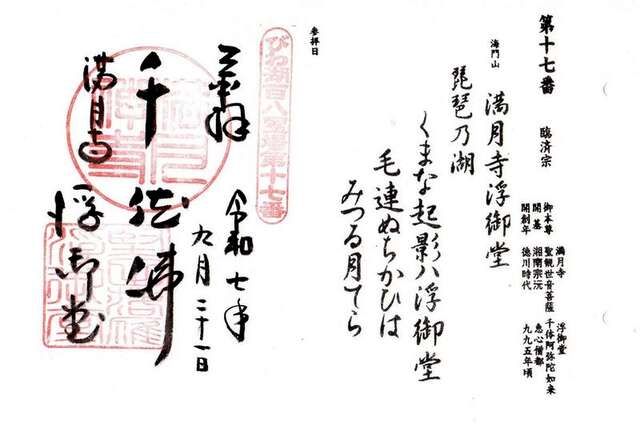 第十七番 臨済宗
満月寺 浮御堂
御本尊 聖観世音菩薩 千体阿弥陀如来
開基 湘南宗沅 恵心僧都
開創年 徳川時代 九九五年頃
海門山 満月寺浮御堂
琵琶乃湖
くまな起影ハ浮御堂
毛連ぬちかひは
みつる月てら
参拝日
びわ湖百八霊場第十七番
奉拝 令和七年
九月二十一日
千体佛
満月寺 浮御堂